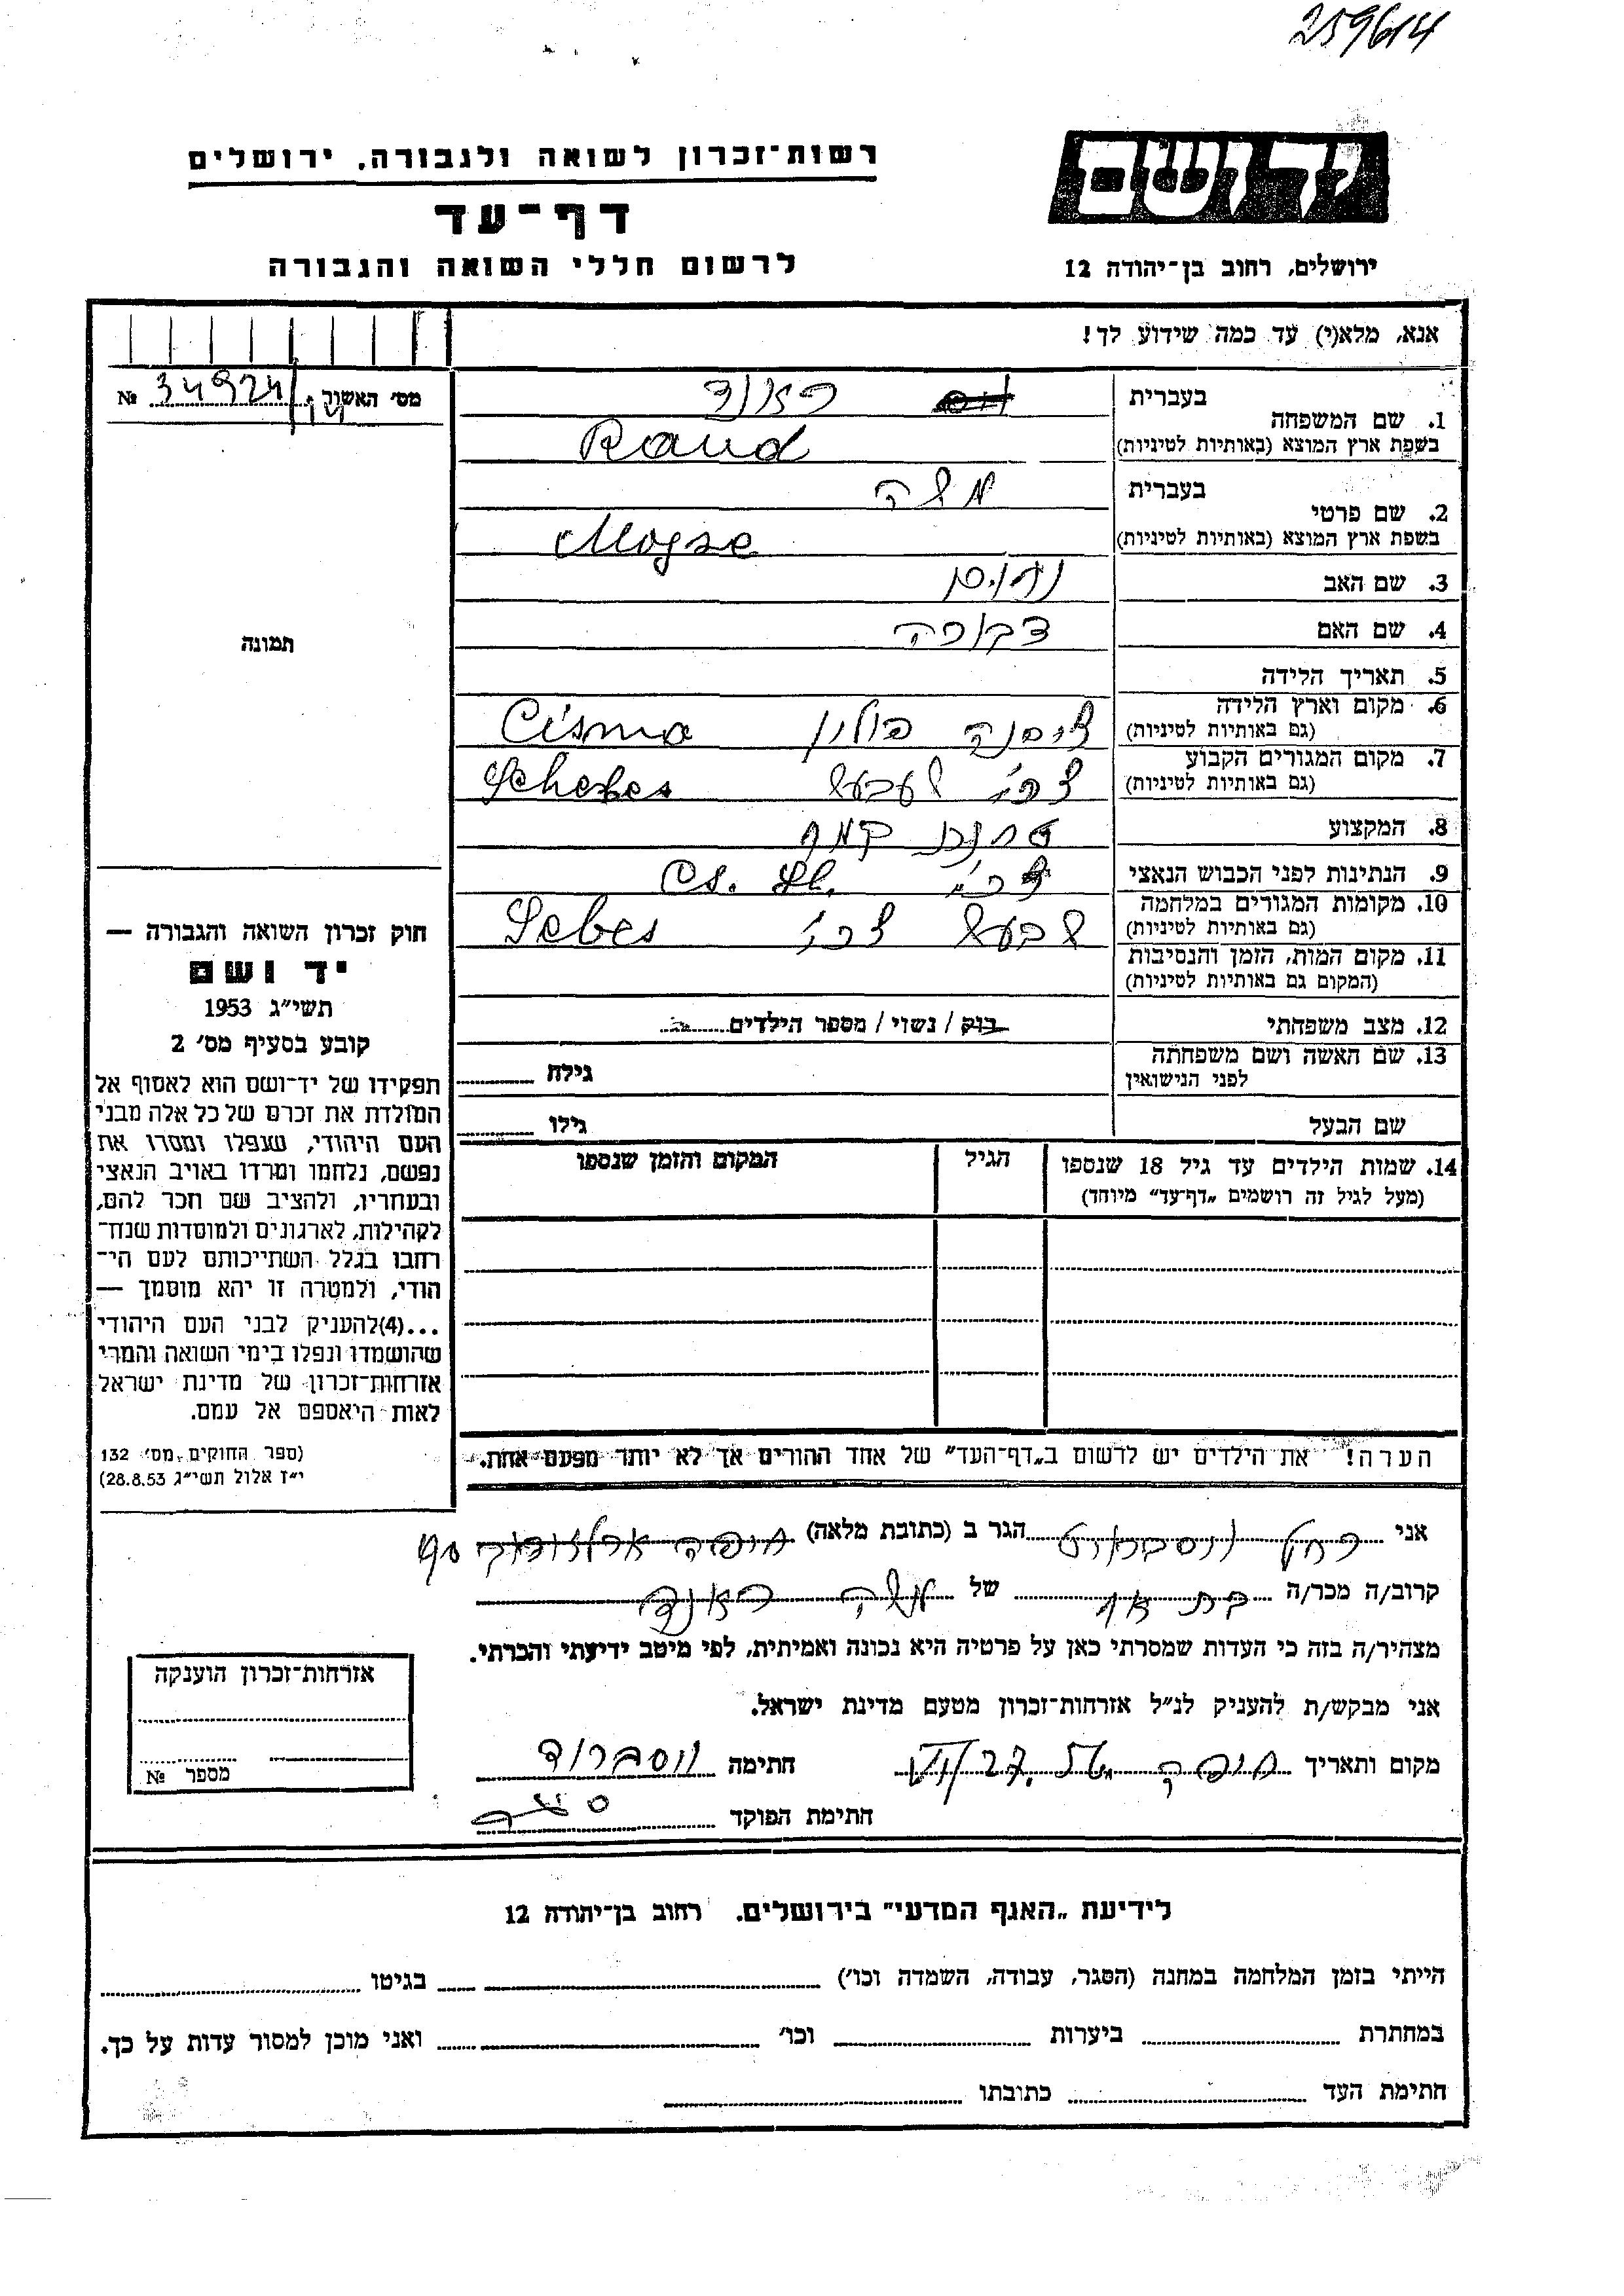 259614
יד ושם
רשות־זכרון לשואה ולגבורה. ירושלים
דף־עד
לרשום חללי השואה והגבורה
ירושלים, רחוב בן־יהודה 12
אנא, מלא(י) עד כמה שידוע לך!
מס׳ האשור 34924 №
1. שם המשפחה בעברית ראנד
בשפת ארץ המוצא (באותיות לטיניות) Rand
2. שם פרטי בעברית משה
בשפת ארץ המוצא (באותיות לטיניות) Mojse
3. שם האב נחום
4. שם האם דבורה
5. תאריך הלידה
6. מקום וארץ הלידה
(גם באותיות לטיניות) ציסנה פולין Cisna
7. מקום המגורים הקבוע
(גם באותיות לטיניות) צכי׳ Schebes
8. המקצוע טחנת קמח
9. הנתינות לפני הכבוש הנאצי צכי׳
10. מקומות המגורים במלחמה
(גם באותיות לטיניות) שבעש צכי׳ Sebes
11. מקום המות, הזמן והנסיבות
(המקום גם באותיות לטיניות)
12. מצב משפחתי רוק / נשוי / מספר הילדים
13. שם האשה ושם משפחתה
לפני הנישואין גילה
שם הבעל גילו
14. שמות הילדים עד גיל 18 שנספו הגיל המקום והזמן שנספו
(מעל לגיל זה רושמים „דף־עד״ מיוחד)
הערה! את הילדים יש לרשום ב„דף־העד״ של אחד ההורים אך לא יותר מפעם אחת.
תמונה
חוק זכרון השואה והגבורה —
יד ושם
תשי״ג 1953
קובע בסעיף מס׳ 2
תפקידו של יד־ושם הוא לאסוף אל
המולדת את זכרם של כל אלה מבני
העם היהודי, שנפלו ומסרו את
נפשם, נלחמו ומרדו באויב הנאצי
ובעוזריו, ולהציב שם וזכר להם,
לקהילות, לארגונים ולמוסדות שנח־
רבו בגלל השתייכותם לעם הי־
הודי, ולמטרה זו יהא מוסמך —
...(4)להעניק לבני העם היהודי
שהושמדו ונפלו בימי השואה והמרי
אזרחות־זכרון של מדינת ישראל
לאות היאספם אל עמם.
(ספר החוקים מס׳ 132
י״ז אלול תשי״ג 28.8.53)
אני רחל הגר ב (כתובת מלאה) חיפה
קרוב/ה מכר/ה בת אח של משה ראנד
מצהיר/ה בזה כי העדות שמסרתי כאן על פרטיה היא נכונה ואמיתית, לפי מיטב ידיעתי והכרתי.
אני מבקש/ת להעניק לנ״ל אזרחות־זכרון מטעם מדינת ישראל.
מקום ותאריך חיפה חתימה וסברוד
חתימת הפוקד
אזרחות־זכרון הוענקה
מספר №
לידיעת „האגף המדעי״ בירושלים. רחוב בן־יהודה 12
הייתי בזמן המלחמה במחנה (הסגר, עבודה, השמדה וכו׳) בגיטו
במחתרת ביערות וכו׳ ואני מוכן למסור עדות על כך.
חתימת העד כתובתו